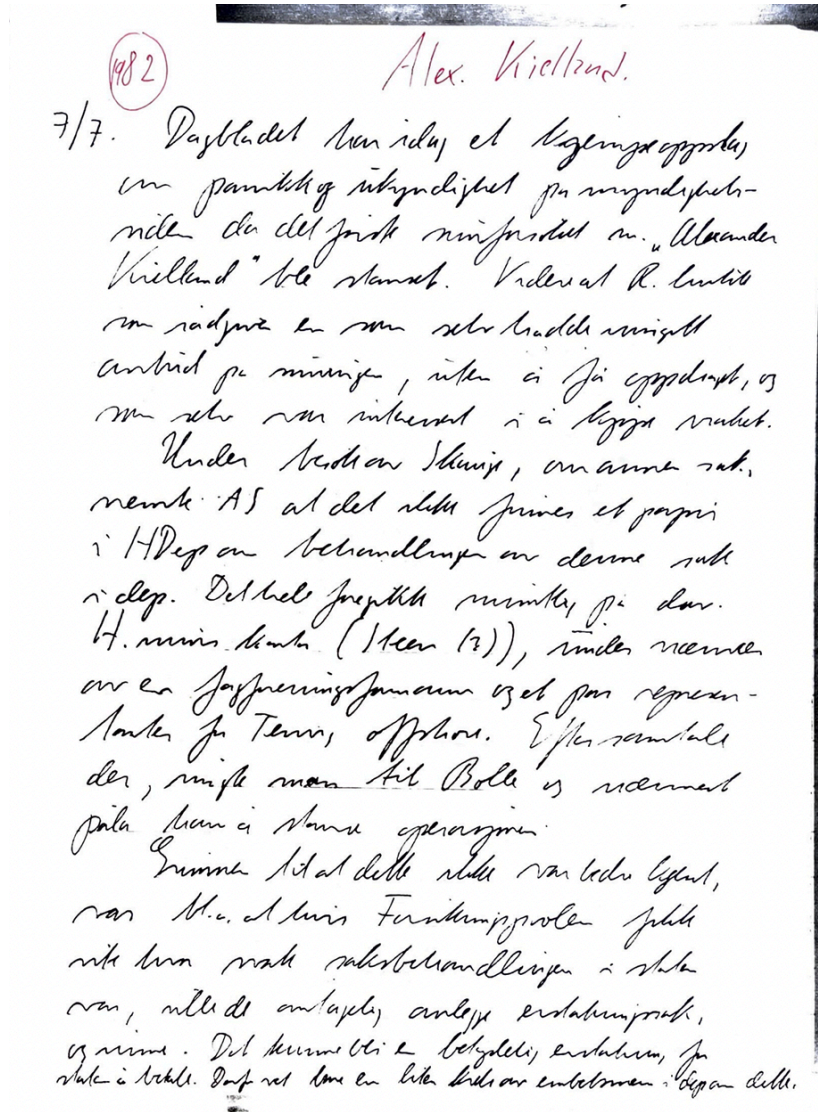 1982
Alex. Kielland.
7/7. Dagbladet har idag et
om panikk og ukyndighet på myndighets-
siden da det første snuforsøket m. "Alexander
Kielland" ble stanset. Videre at R. brukte
som rådgiver en som selv hadde inngitt
anbud på snuingen, uten å få oppdraget, og
som selv var interessert i å kjøpe vraket.
Under besøk av Skauge, om annen sak,
nevnte AS at det ikke finnes et papir
i HDep om behandlingen av denne sak
i dep. Det hele foregikk muntlig på dav.
H.mins kontor (Steen (?)), under nærvær
av en fagforeningsformann og et par represen-
tanter for offshore. Efter samtale
der, ringte man til Bolle og nærmest
påla ham å stanse operasjonen.
Grunnen til at dette ikke var bedre kjent,
var bl.a. at hvis Forsikringspoolen fikk
vite hva slags saksbehandlingen i staten
var, ville de antagelig anlegge erstatningssak,
og vinne. Det kunne bli en betydelig erstatning for
staten å betale. Derfor vet bare en liten krets av embetsmenn i dep om dette.